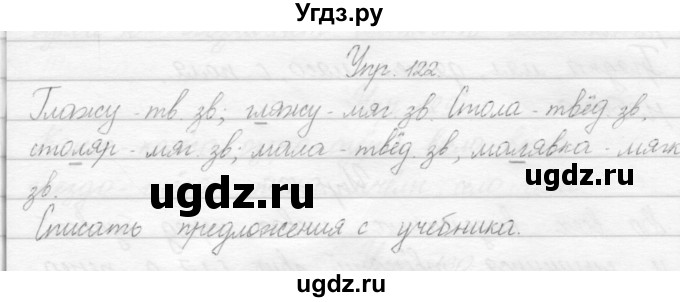 Угдз.ру
Упр. 122.
Глажу - тв. зв; гляжу - мяг. зв. Стола - твёд. зв,
столяр - мяг. зв; мала - твёд. зв, малявка - мягк
зв.
Списать предложения с учебника.
ugdz.ru ugdz.ru
ugdz.ru